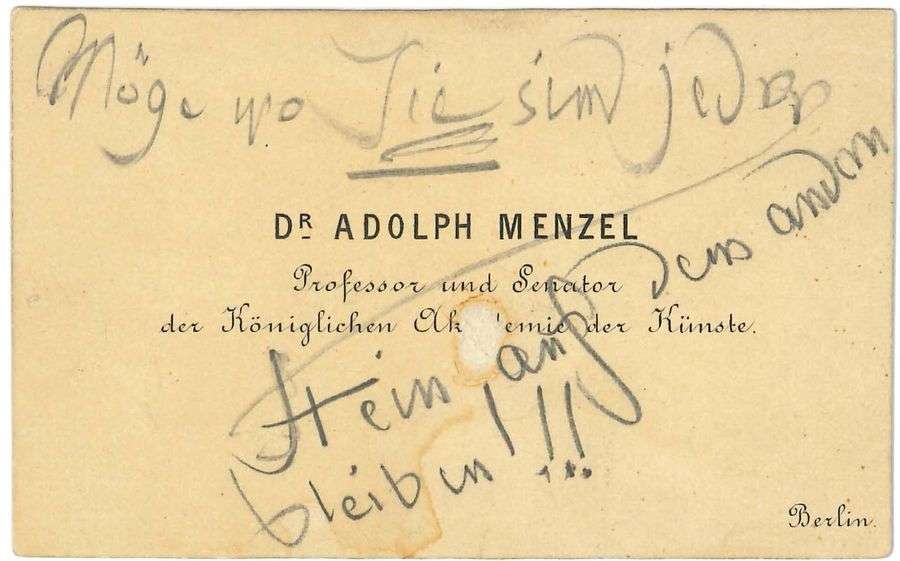 Möge wo Sie sind jeder
DR ADOLPH MENZEL
Professor und Senator
der Königlichen Ak demie der Künste.
Stein auf dem andern
bleiben!!!
Berlin.